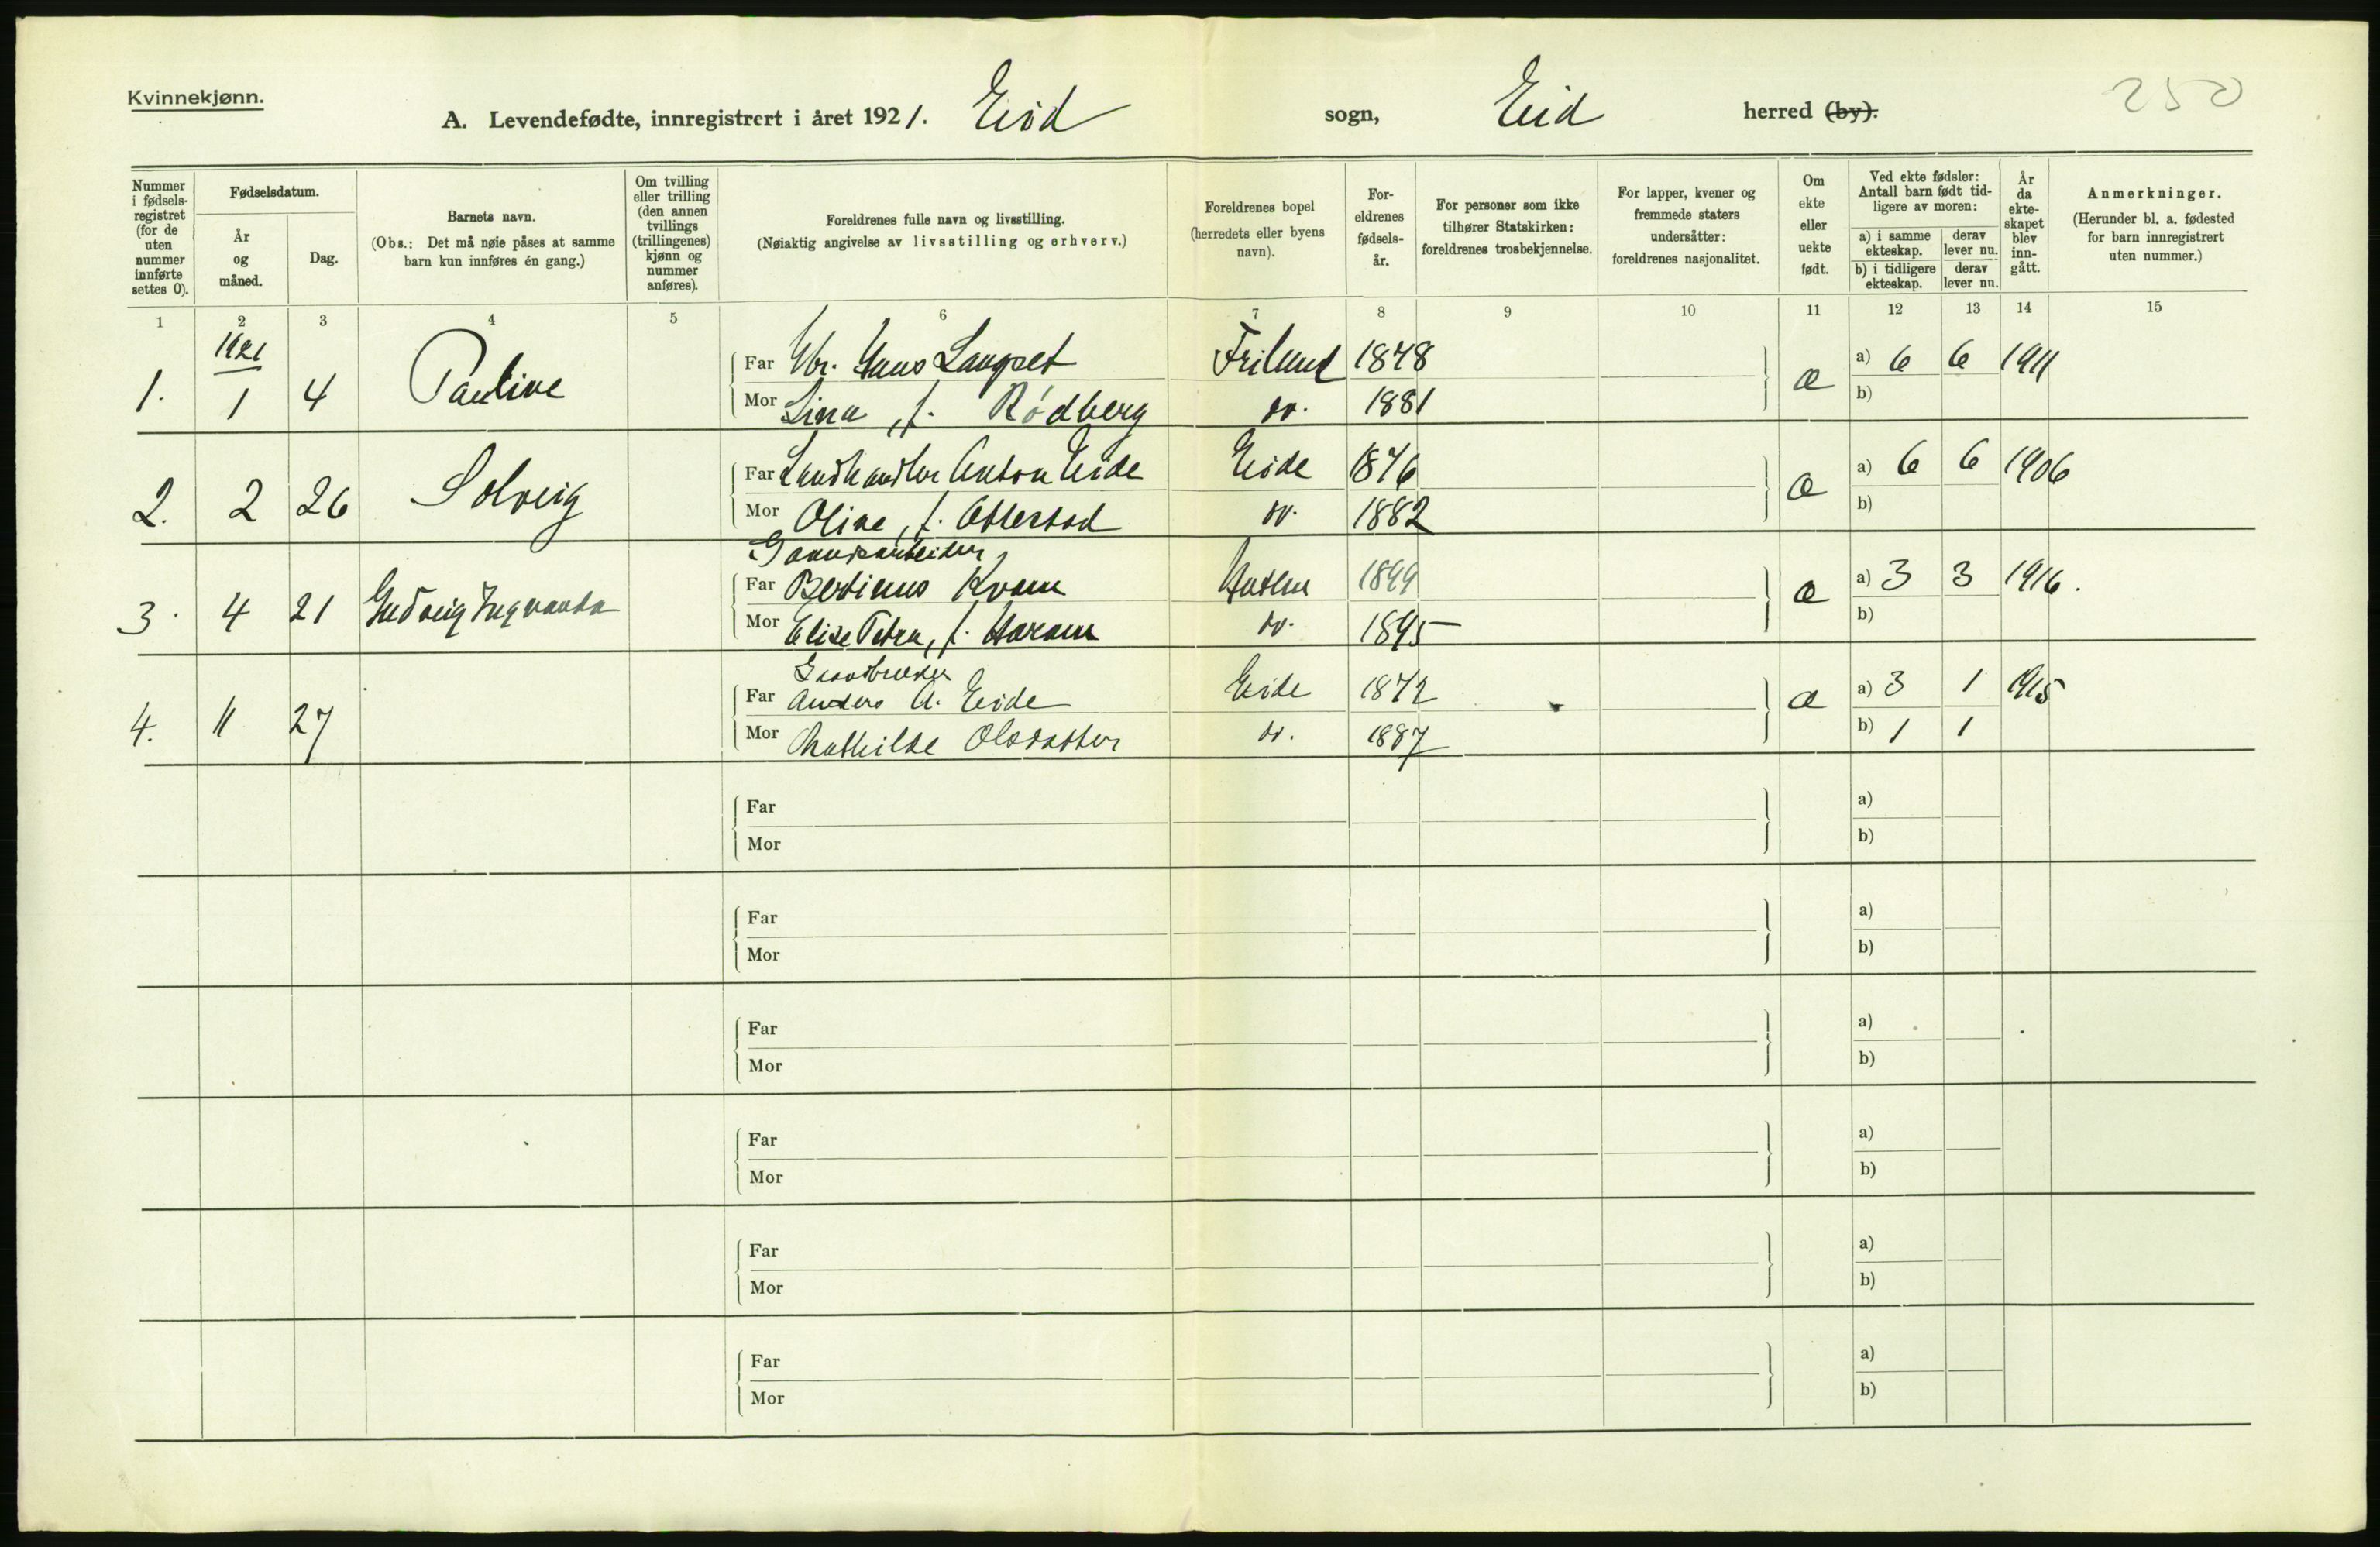 Kvinnekjønn.
250
A. Levendefødte, innregistrert i året 1921. Eid sogn, Eid herred (by).
Nummer i fødsels-registret (for de uten nummer innførte settes 0).
Fødselsdatum.
År og måned.
Dag.
Barnets navn.
(Obs.: Det må nøie påses at samme barn kun innføres én gang.)
Om tvilling eller trilling (den annen tvillings (trillingenes) kjønn og nummer anføres).
Foreldrenes fulle navn og livsstilling.
(Nøiaktig angivelse av livsstilling og erhverv.)
Foreldrenes bopel (herredets eller byens navn).
For-eldrenes fødsels-år.
For personer som ikke tilhører Statskirken: foreldrenes trosbekjennelse.
For lapper, kvener og fremmede staters undersåtter: foreldrenes nasjonalitet.
Om ekte eller uekte født.
Ved ekte fødsler: Antall barn født tid-ligere av moren:
a) i samme ekteskap.
derav lever nu.
b) i tidligere ekteskap.
derav lever nu.
År da ekte-skapet blev inn-gått.
Anmerkninger.
(Herunder bl. a. fødested for barn innregistrert uten nummer.)
1 2 3 4 5 6 7 8 9 10 11 12 13 14 15
1921
1. 1 4 Pauline Far Gbr. Hans Langset 1878 æ a) 6 6 1911
Mor Lina, f. Rødberg do. 1881 b)
2. 2 26 Solveig Far Landhandler Anton Eide Eide 1876 æ a) 6 6 1906
Mor Oline, f. do. 1882 b)
Gaardsarbeider
3. 4 21 Far Bertinus Kvam 1899 æ a) 3 3 1916.
Mor Elise Petra, f. Haram do. 1895 b)
Gaardbruker
4. 11 27 Far Anders A. Eide Eide 1872 æ a) 3 1 1915
Mor Mathilde Olsdatter do. 1887 b) 1 1
Far a)
Mor b)
Far a)
Mor b)
Far a)
Mor b)
Far a)
Mor b)
Far a)
Mor b)
Far a)
Mor b)